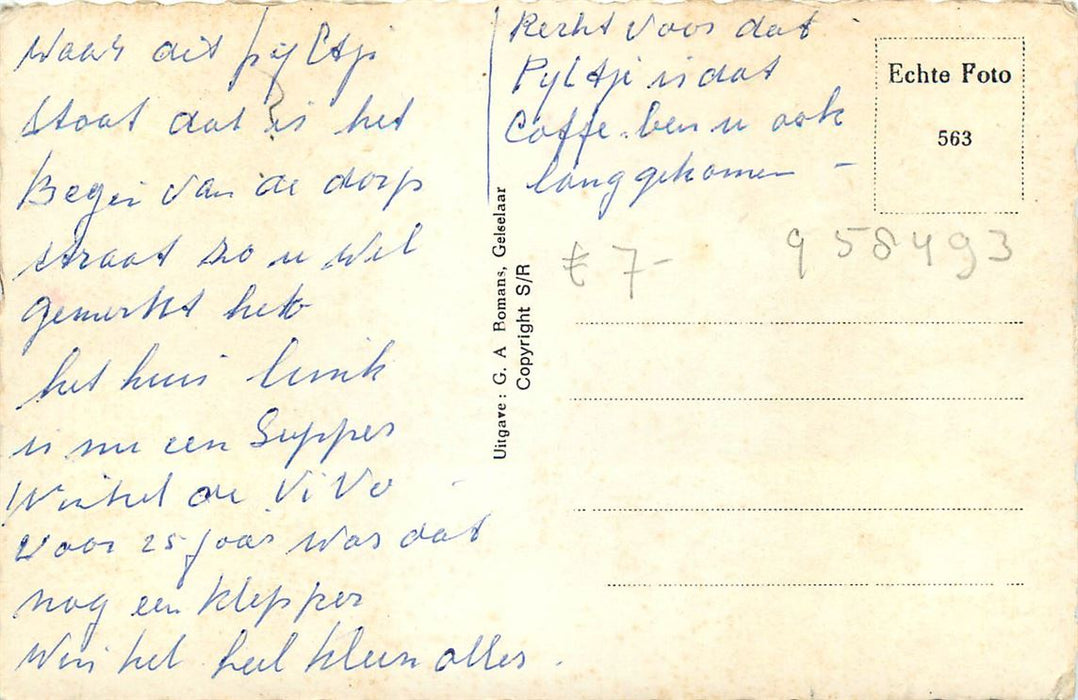 Waar dit pijltji
staat dat is het
Begin van de dorp
straat zo u wel
gemerkt heb
het huis link
is nu een Supper
Winkel de ViVo -
Voor 25 Jaar was dat
nog een klepper
Winkel heel klein alles.
Recht voor dat
Pyltje is dat
Caffe ben u ook
langgekomen -
Echte Foto
563
€ 7-
958493
Uitgave: G. A Bomans, Gelselaar
Copyright S/R